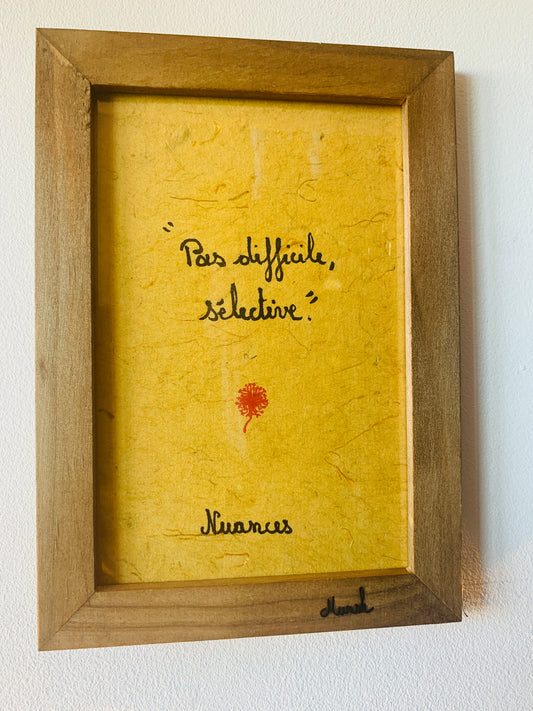 "Pas difficile,
sélective."
Nuances